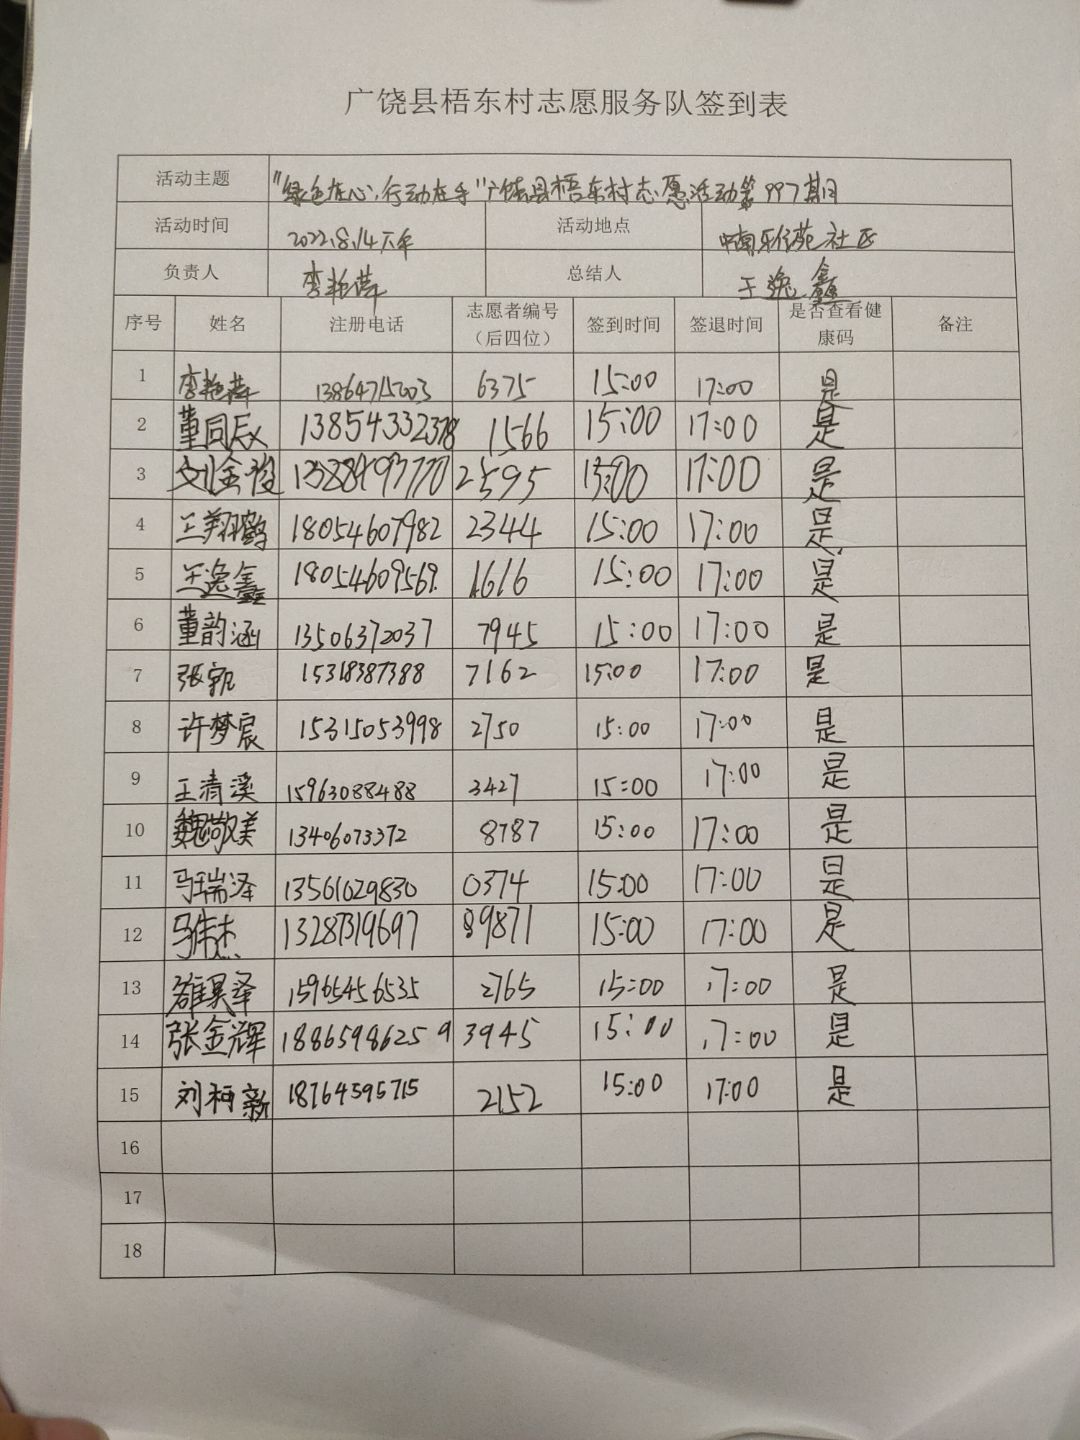 广饶县梧东村志愿服务队签到表
活动主题 "绿色在心,行动在手"广饶县梧东村志愿活动第997期日
活动时间 2022.8.14下午 活动地点 中南雅苑社区
负责人 李艳萍 总结人 王逸鑫
序号 姓名 注册电话 志愿者编号（后四位） 签到时间 签退时间 是否查看健康码 备注
1 李艳萍 13864715003 6375 15:00 17:00 是
2 董同辰 13854332378 1566 15:00 17:00 是
3 刘金俊 2595 15:00 17:00 是
4 王翔鹤 18054607982 2344 15:00 17:00 是
5 王逸鑫 18054609569 1616 15:00 17:00 是
6 董韵涵 13506372037 7945 15:00 17:00 是
7 张 15318387388 7162 15:00 17:00 是
8 许梦宸 15315053998 2750 15:00 17:00 是
9 王清溪 15963088488 3427 15:00 17:00 是
10 魏敬美 13406073372 8787 15:00 17:00 是
11 马瑞泽 13561029830 0374 15:00 17:00 是
12 马伟杰 13287319697 9871 15:00 17:00 是
13 昊泽 15965456535 2765 15:00 17:00 是
14 张金辉 18865986259 3945 15:00 17:00 是
15 刘柯新 18764595715 2152 15:00 17:00 是
16
17
18